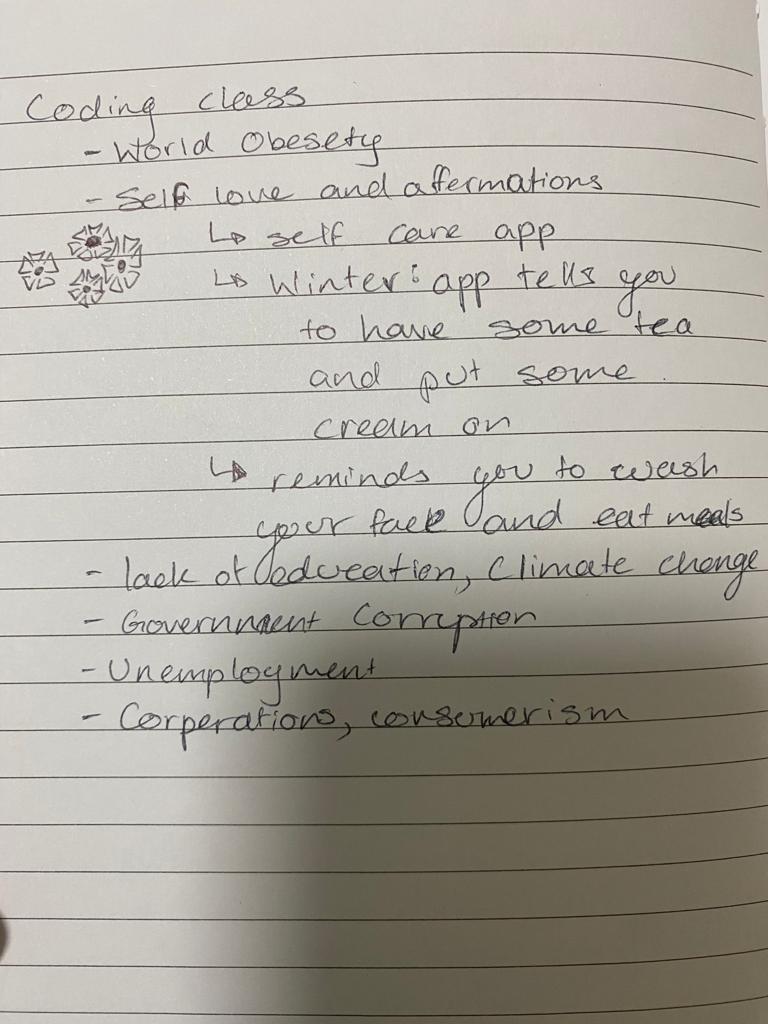 Coding class
- World Obesety
- Self love and affermations
↳ self care app
↳ Winter: app tells you
to have some tea
and put some
cream on
↳ reminds you to wash
your face and eat meals
- lack of education, Climate change
- Government Corruption
- Unemployment
- Corperations, consumerism